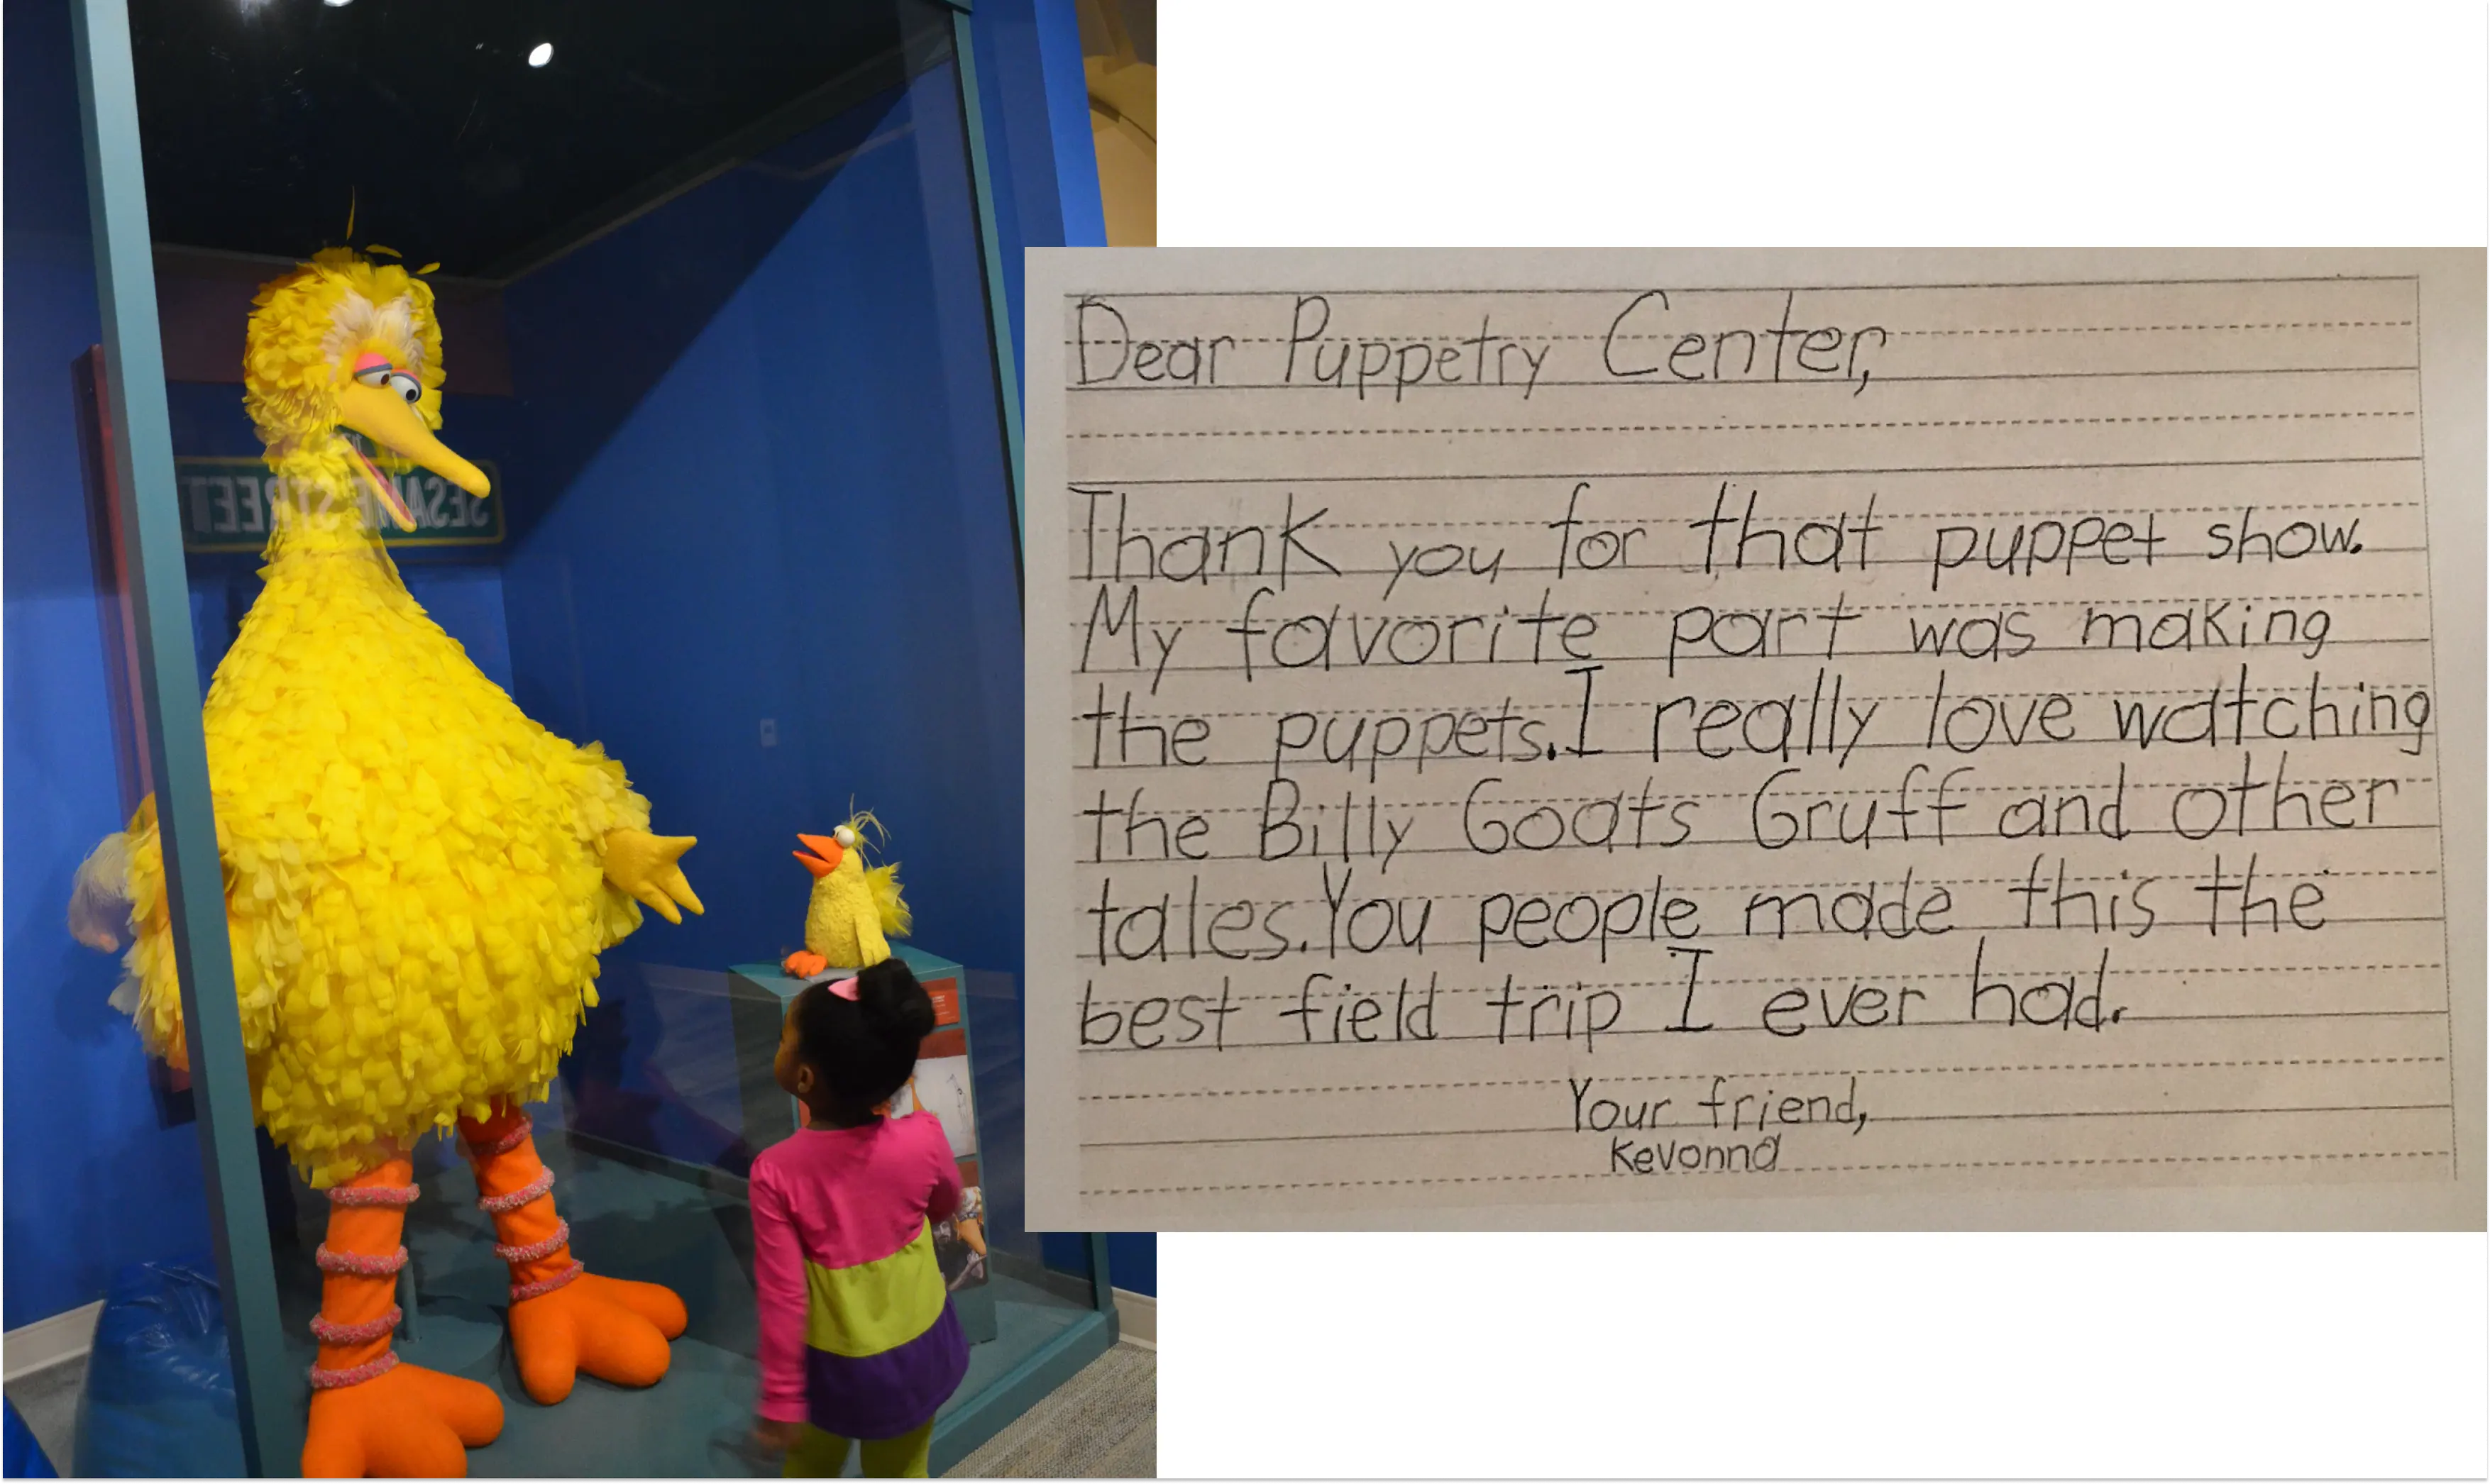 SESAME STREET
Dear Puppetry Center,
Thank you for that puppet show.
My favorite part was making
the puppets. I really love watching
the Billy Goats Gruff and other
tales. You people made this the
best field trip I ever had.
Your friend,
Kevonna